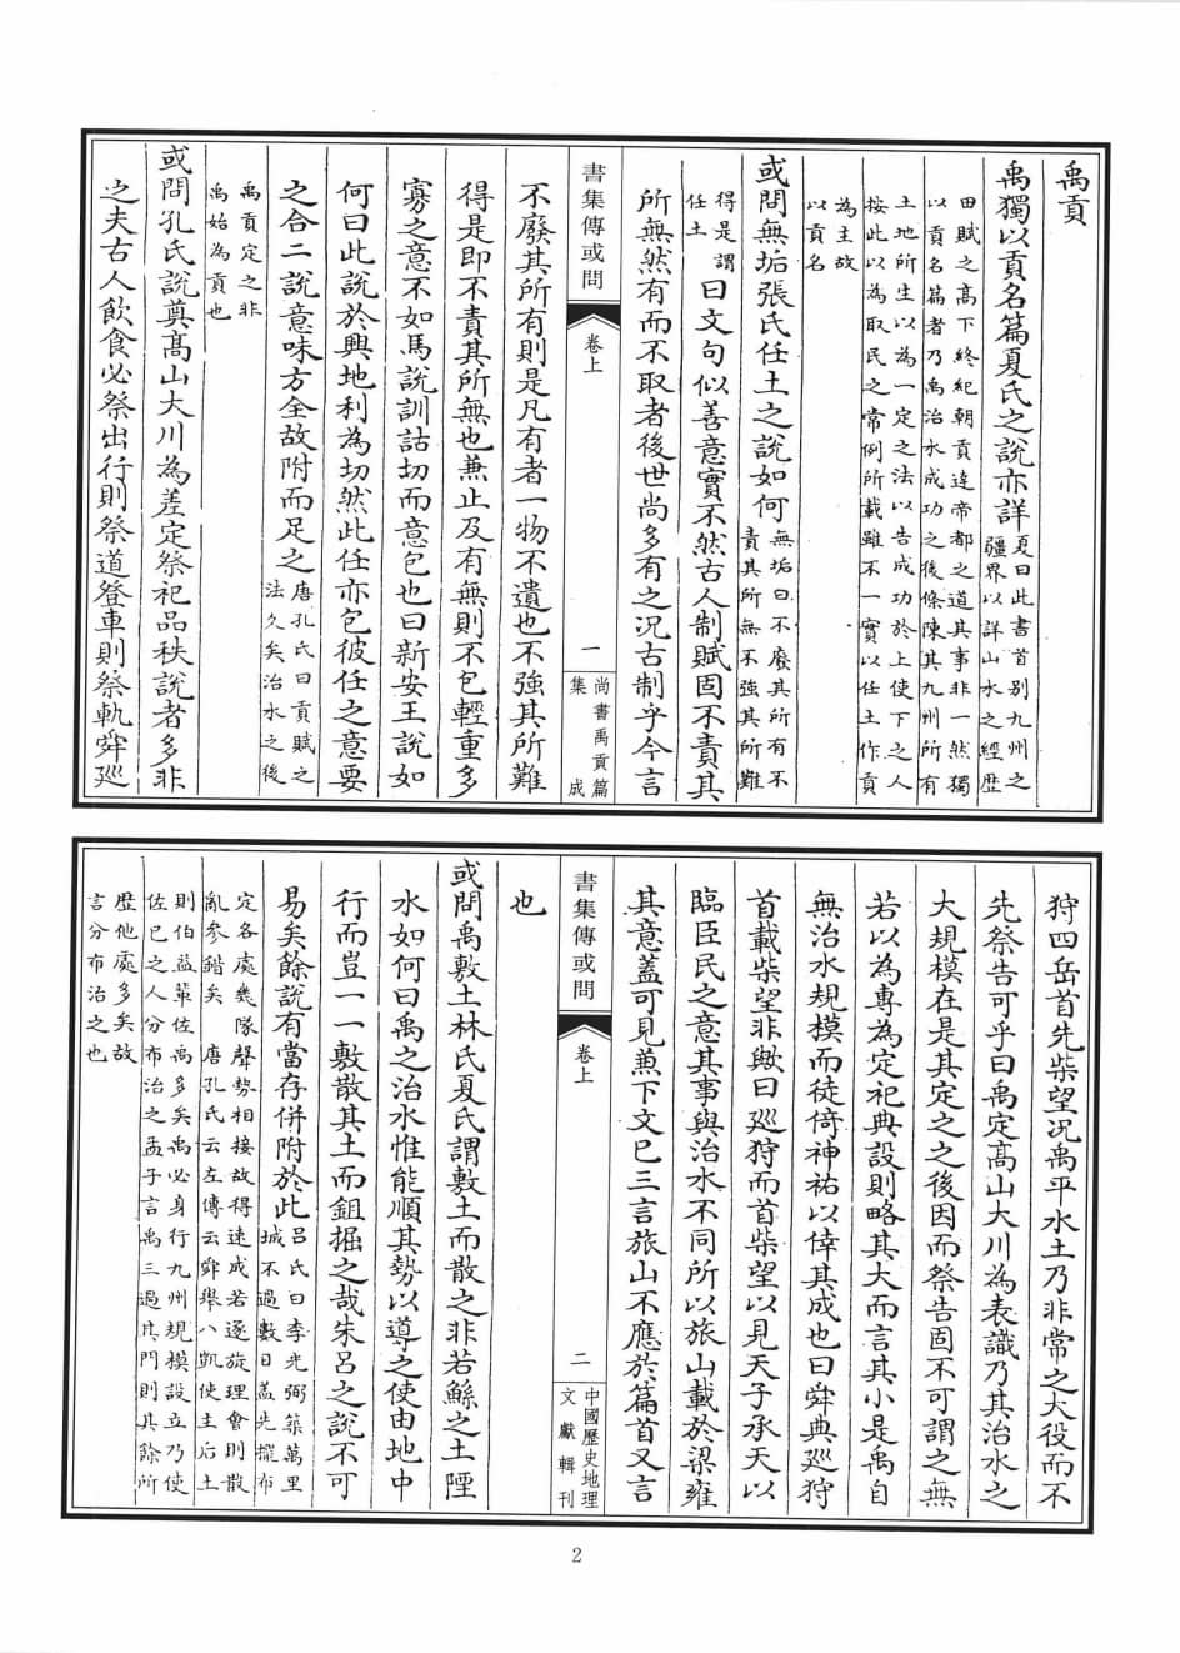 禹貢
禹獨以貢名篇夏氏之說亦詳夏曰此書首別九州之
疆界以詳山水之經歷
田賦之高下終紀朝貢達帝都之道其事非一然獨
以貢名篇者乃禹治水成功之後條陳其九州所有
土地所生以為一定之法以告成功於上使下之人
按此以為取民之常例所載雖不一實以任土作貢
為主故
以貢名
或問無垢張氏任土之說如何無垢曰不廢其所有不
責其所無不強其所難
得是謂
任土
曰文句似善意實不然古人制賦固不責其
所無然有而不取者後世尚多有之況古制乎今言
書集傳或問
卷上
一
尚書禹貢篇
集成
不廢其所有則是凡有者一物不遺也不強其所難
得是即不責其所無也兼止及有無則不包輕重多
寡之意不如馬說訓詁切而意包也曰新安王說如
何曰此說於興地利為切然此任亦包彼任之意要
之合二說意味方全故附而足之唐孔氏曰貢賦之
法久矣治水之後
禹貢定之非
禹始為貢也
或問孔氏說奠高山大川為差定祭祀品秩說者多非
之夫古人飲食必祭出行則祭道登車則祭軌舜巡
狩四岳首先柴望況禹平水土乃非常之大役而不
先祭告可乎曰禹定高山大川為表識乃其治水之
大規模在是其定之之後因而祭告固不可謂之無
若以為專為定祀典設則略其大而言其小是禹自
無治水規模而徒倚神祐以倖其成也曰舜典巡狩
首載柴望非歟曰巡狩而首柴望以見天子承天以
臨臣民之意其事與治水不同所以旅山載於梁雍
其意蓋可見兼下文已三言旅山不應於篇首又言
書集傳或問
卷上
二
中國歷史地理
文獻輯刊
也
或問禹敷土林氏夏氏謂敷土而散之非若鯀之土陻
水如何曰禹之治水惟能順其勢以導之使由地中
行而豈一一敷散其土而鉏掘之哉朱呂之說不可
易矣餘說有當存併附於此呂氏曰李光弼築萬里
城不過數日蓋先擺布
定各處幾隊聲勢相接故得速成若逐旋理會則散
亂參錯矣 唐孔氏云左傳云舜舉八凱使主后土
則伯益輩佐禹多矣禹必身行九州規模設立乃使
佐已之人分布治之孟子言禹三過其門則其餘所
歷他處多矣故
言分布治之也
2